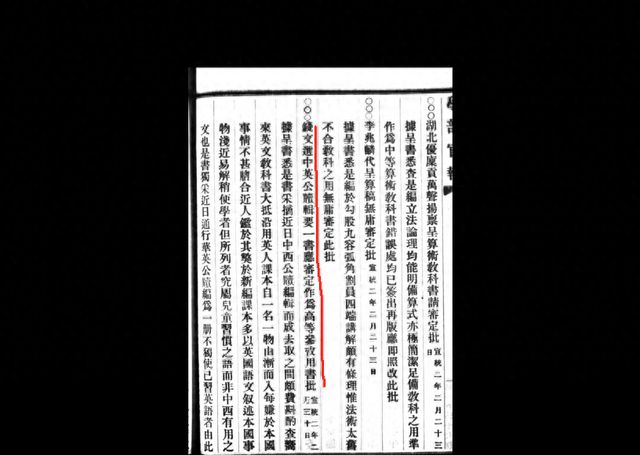 學部官報
○○○湖北優廩貢萬聲揚稟呈算術教科書請審定批宣統二年二月二十三日
據呈書悉查是編立法論理均能明備算式亦極簡潔足備教科之用準
作爲中等算術教科書錯誤處均已簽出再版應即照改此批
○○○李兆麟代呈算稿無庸審定批宣統二年二月二十三日
據呈書悉是編於勾股九容弧角割員四端講解頗有條理惟法術太舊
不合教科之用無庸審定此批
○○○錢文選中英公牘輯要一書應審定作爲高等參攷用書批宣統二年二月三十日
據呈書悉是書采摘近日中西公牘編輯而成去取之間頗費斟酌查嚮
來英文教科書大抵沿用英人課本自一名一物由漸而入每嫌於本國
事情不甚膺合近人鑑於其獘於新編課本多以英國語文叙述本國事
物淺近易解稍使學者但所列者究屬兒童習慣之語而非中西有用之
文也是書獨采近日通行華英公牘編爲一册不獨使已習英語者由此